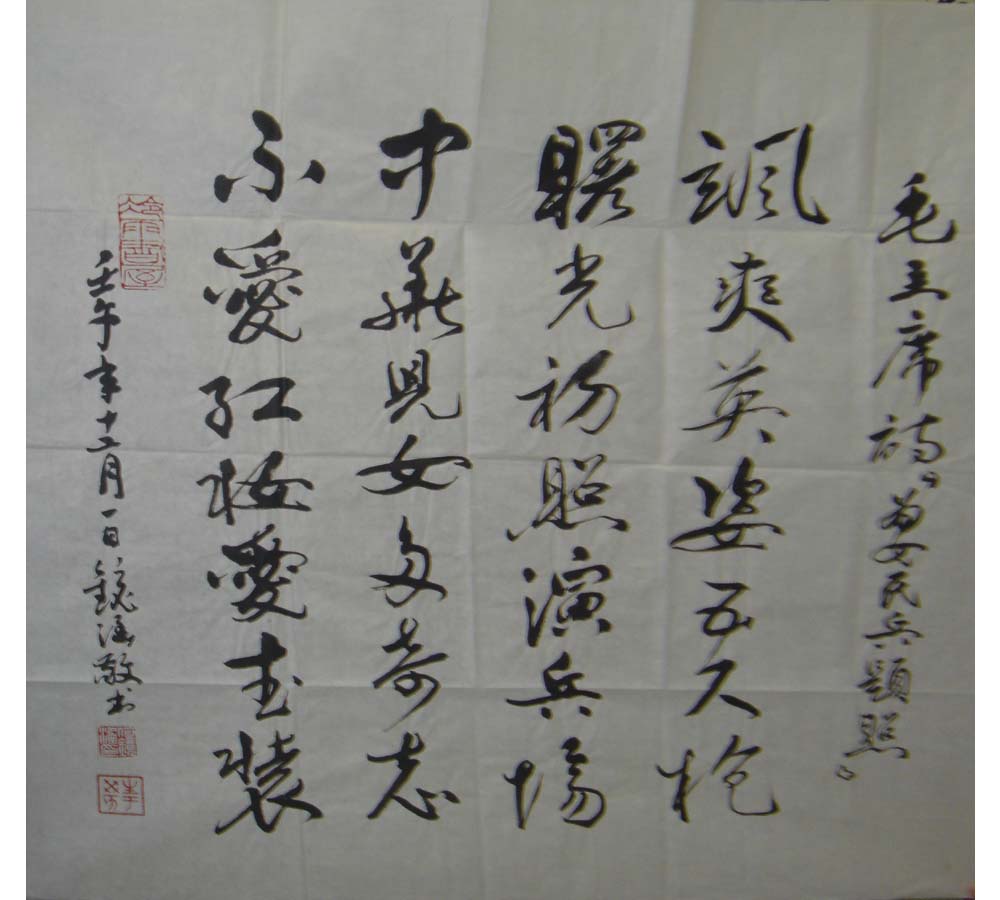 毛主席詩“為女民兵題照”
颯爽英姿五尺枪
曙光初照演兵場
中華兒女多奇志
不愛红妝愛武装
壬午年十二月一日 鏡涵敬书